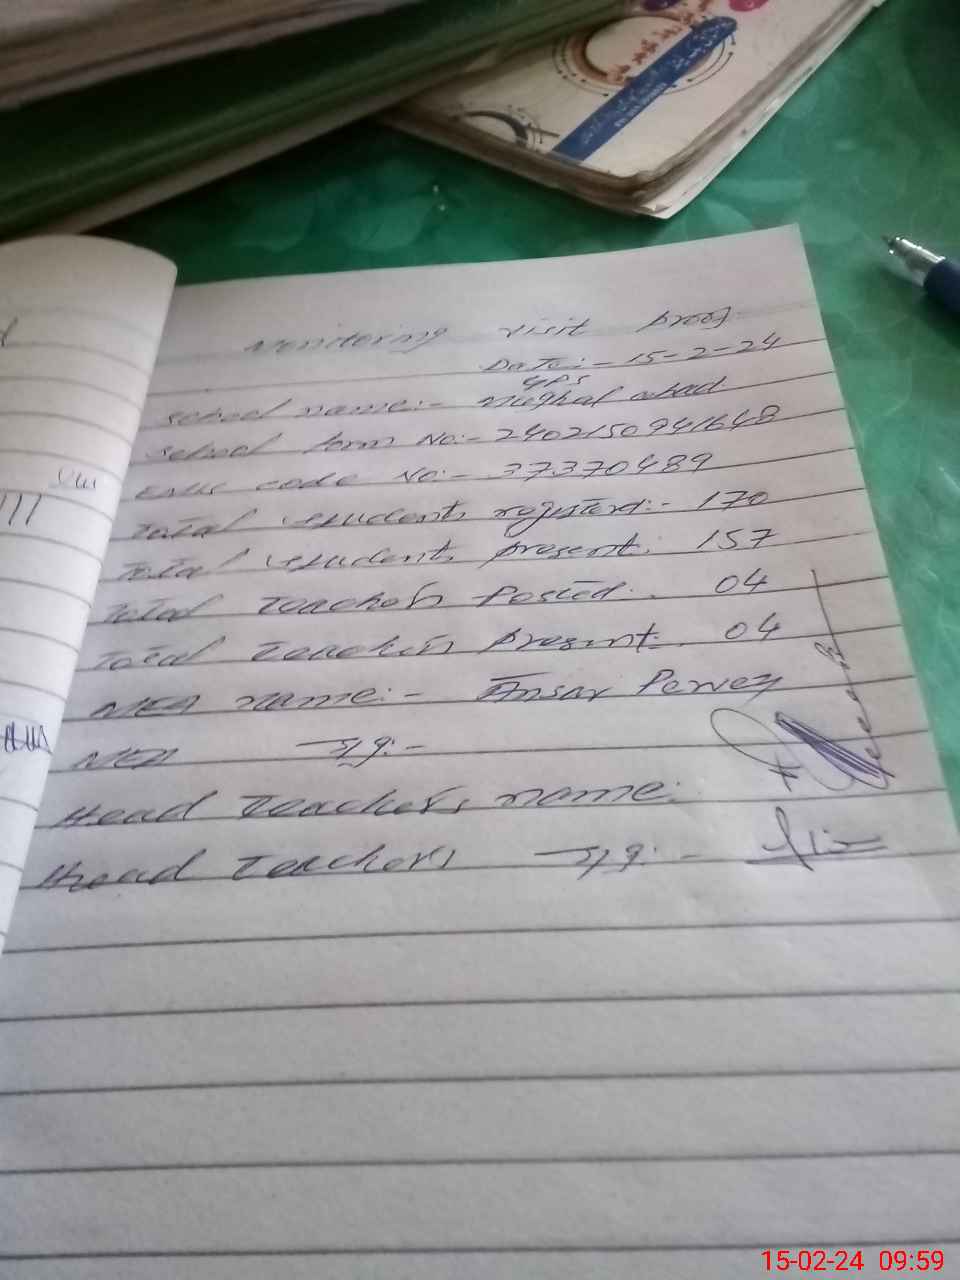 Monitoring visit proof
Date:- 15-2-24
GPS
School name:- Mughal abad
School form No:- 2402150941648
EMIS code No:- 37370489
Total students registerd:- 170
Total students present: 157
Total Teachers Posted: 04
Total Teachers present: 04
MEA name:- Ansar Pervez
MEA Sig:-
Head Teachers name:
Head Teachers Sig:-
15-02-24 09:59